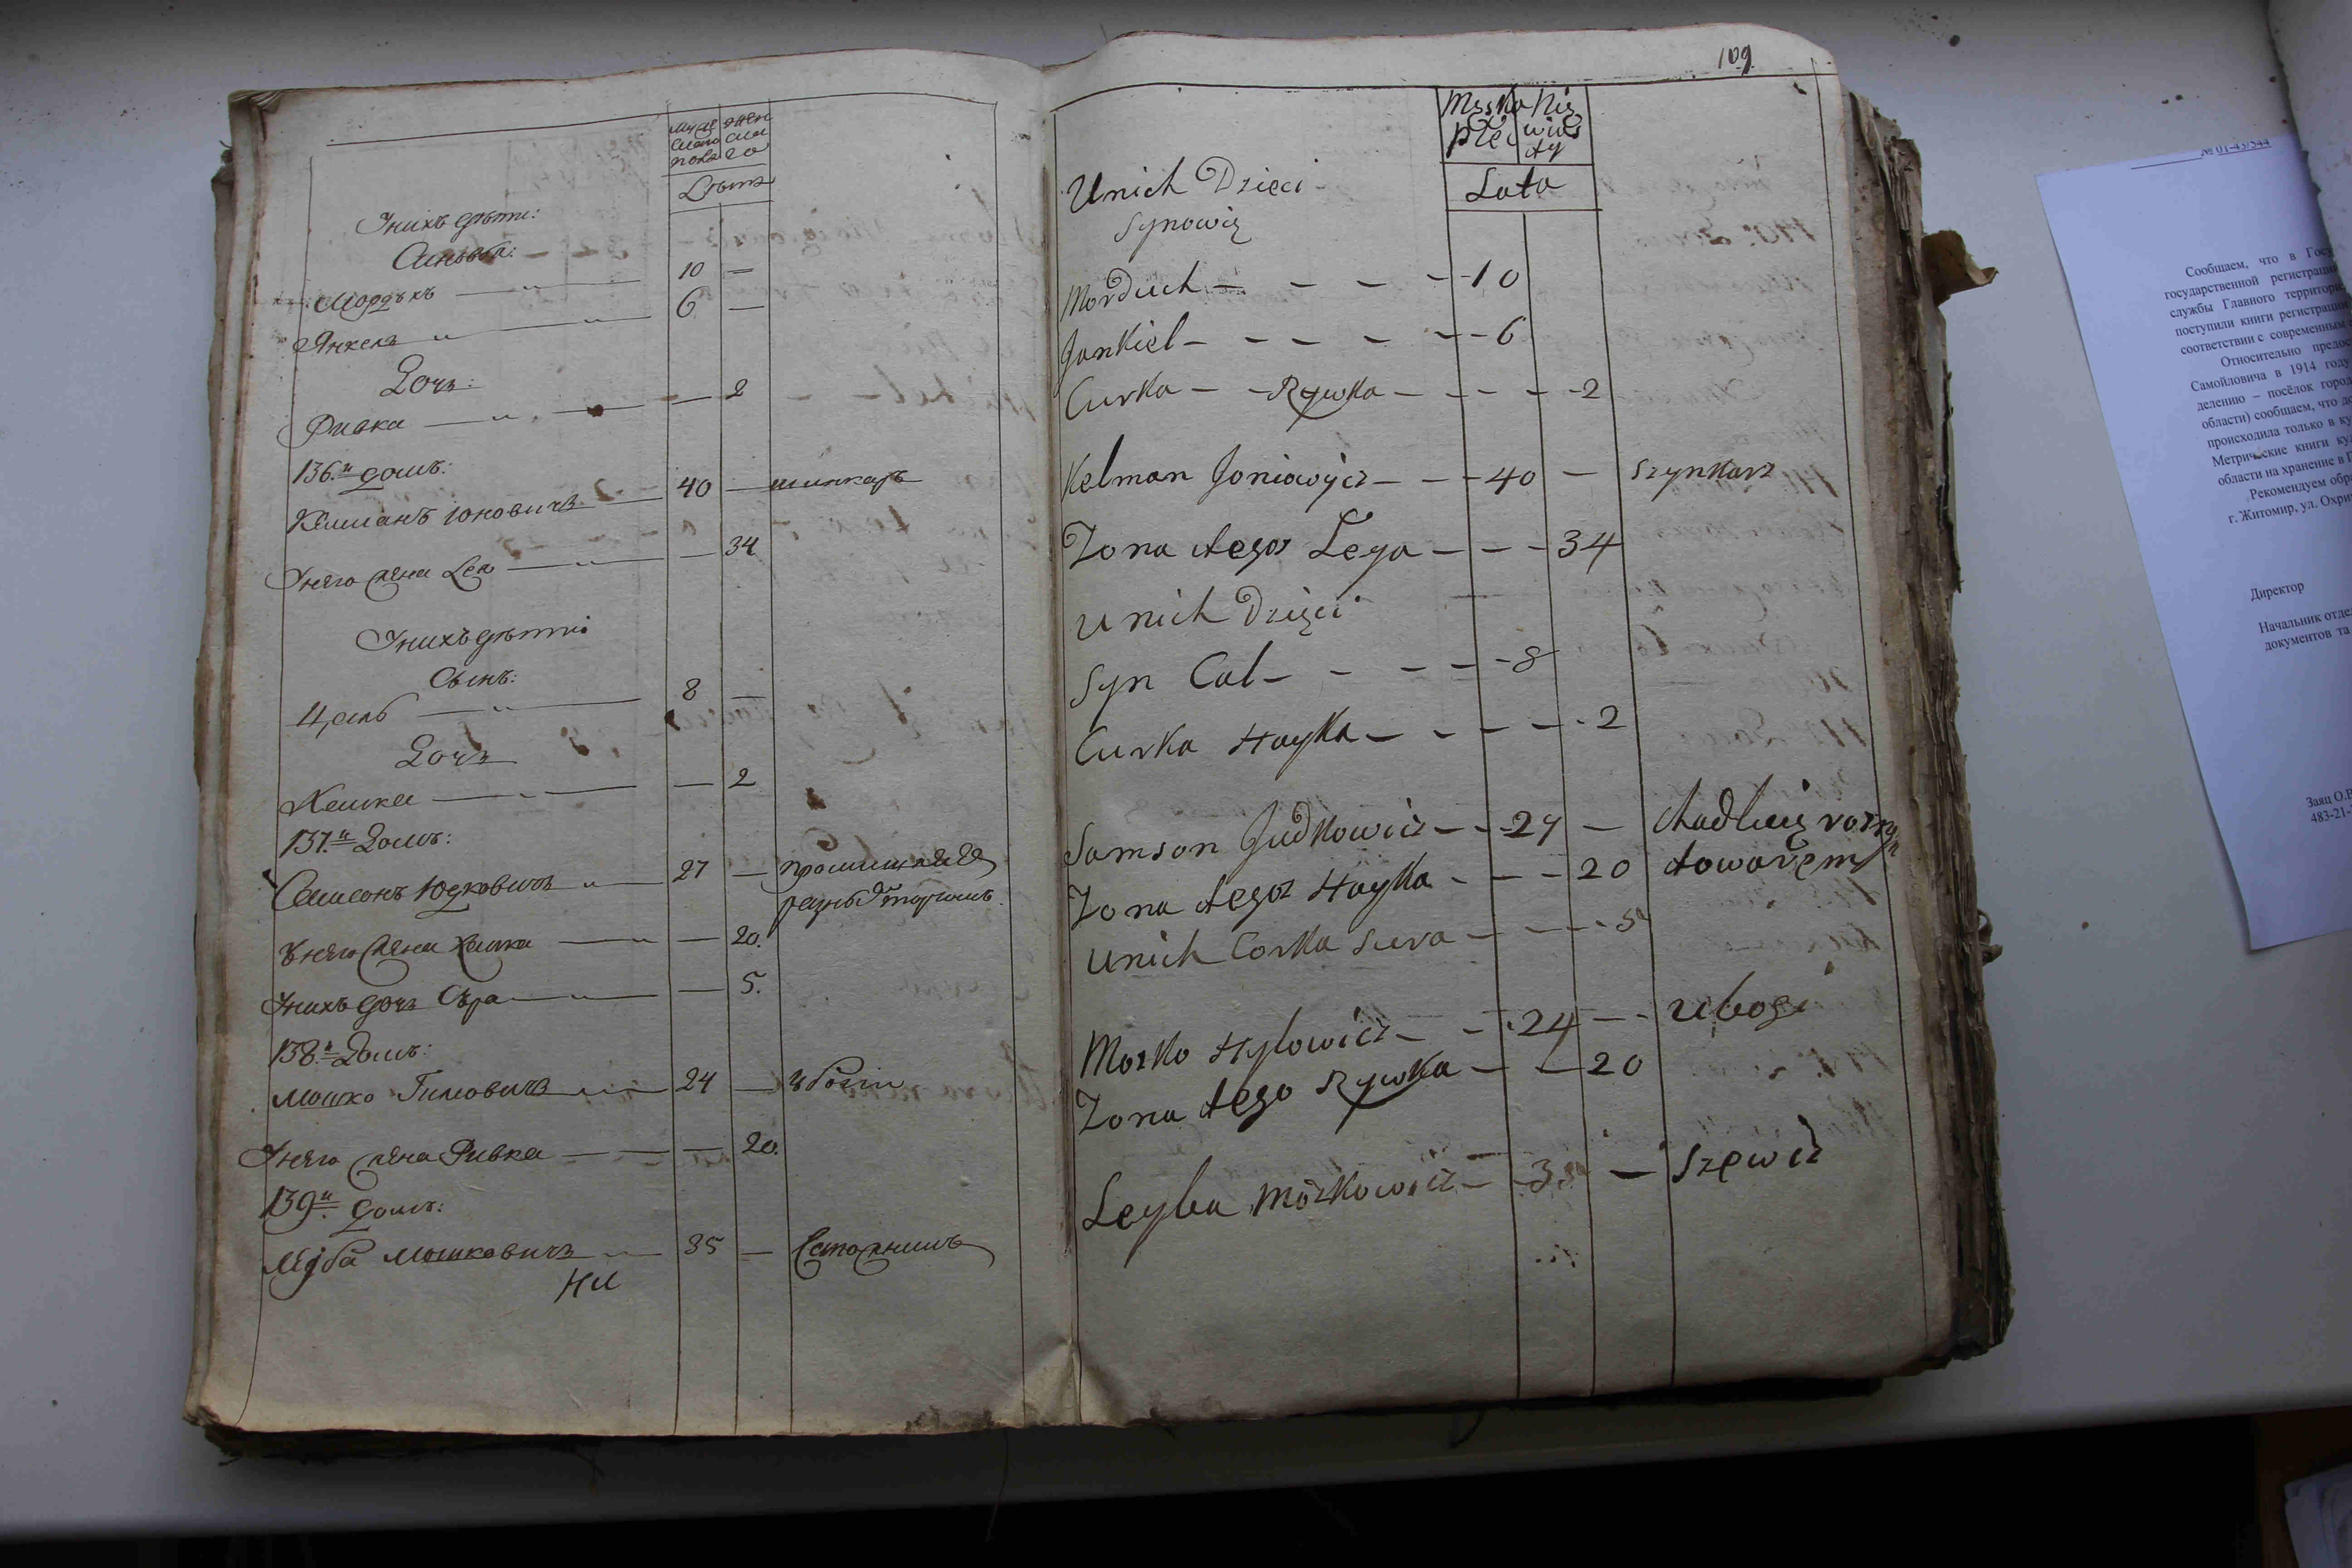 мужеска пола
женскаго
Лѣта
Унихъ дѣти:
Синовя:
Мордъхъ 10 —
Янкель 6 —
Дочь:
Ривка — 2
136.й домъ:
Келманъ Юновичь 40 — шинкарь
Унего жена Лея — 34
Унихъ дѣти
Сынъ:
Цаль 8 —
Дочь
Хайка — 2
137.й Домъ:
Самсонъ Юдковичь 27 — промишляе
разны товаромъ
Унего жена Хайка — 20.
Унихъ дочь Сура — 5.
138.й Домъ:
Мошко Гиловичь 24 — убогiи
Унего жена Ривка — 20.
139.й домъ:
Лейба Мошковичь 35 —
109
Męska płeć
Lata
Unich Dzieci
Synowię
Morduch — — — — 10
Jankiel — — — — — 6
Curka — Rywka — — — — 2
Kelman Joniowicz — — 40 — Szynkarz
Zona Jego Leya — — — 34
Unich Dzięci
Syn Cal — — — — 8
Curka Hayka — — — — 2
Samson Judkowicz — — 27 — Hadluię rożny
Zona Jego Hayka — — — 20 towarem
Unich Corka Sura — — — 5
Moszko Hylowicz — — 24 — Ubogi
Zona Jego Rywka — — 20
Leyba Moszkowicz — 35 — Szewcz
№ 01-43/544
Сообщаем, что в
государственной регистрации
службы Главного
поступили книги регистрации
соответствии с современным
Относительно
Самойловича в 1914 году
делению – посёлок
области) сообщаем, что
происходила только в
Метрические книги
области на хранение в
Рекомендуем
г. Житомир, ул.
Директор
Начальник
документов та
Заяц О.В
483-21-